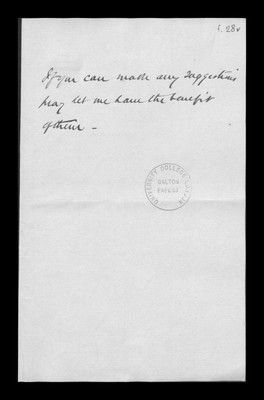 f. 28v
If you can make any suggestions
pray let me have the benefit
of them –
UNIVERSITY COLLEGE LONDON
GALTON
PAPERS